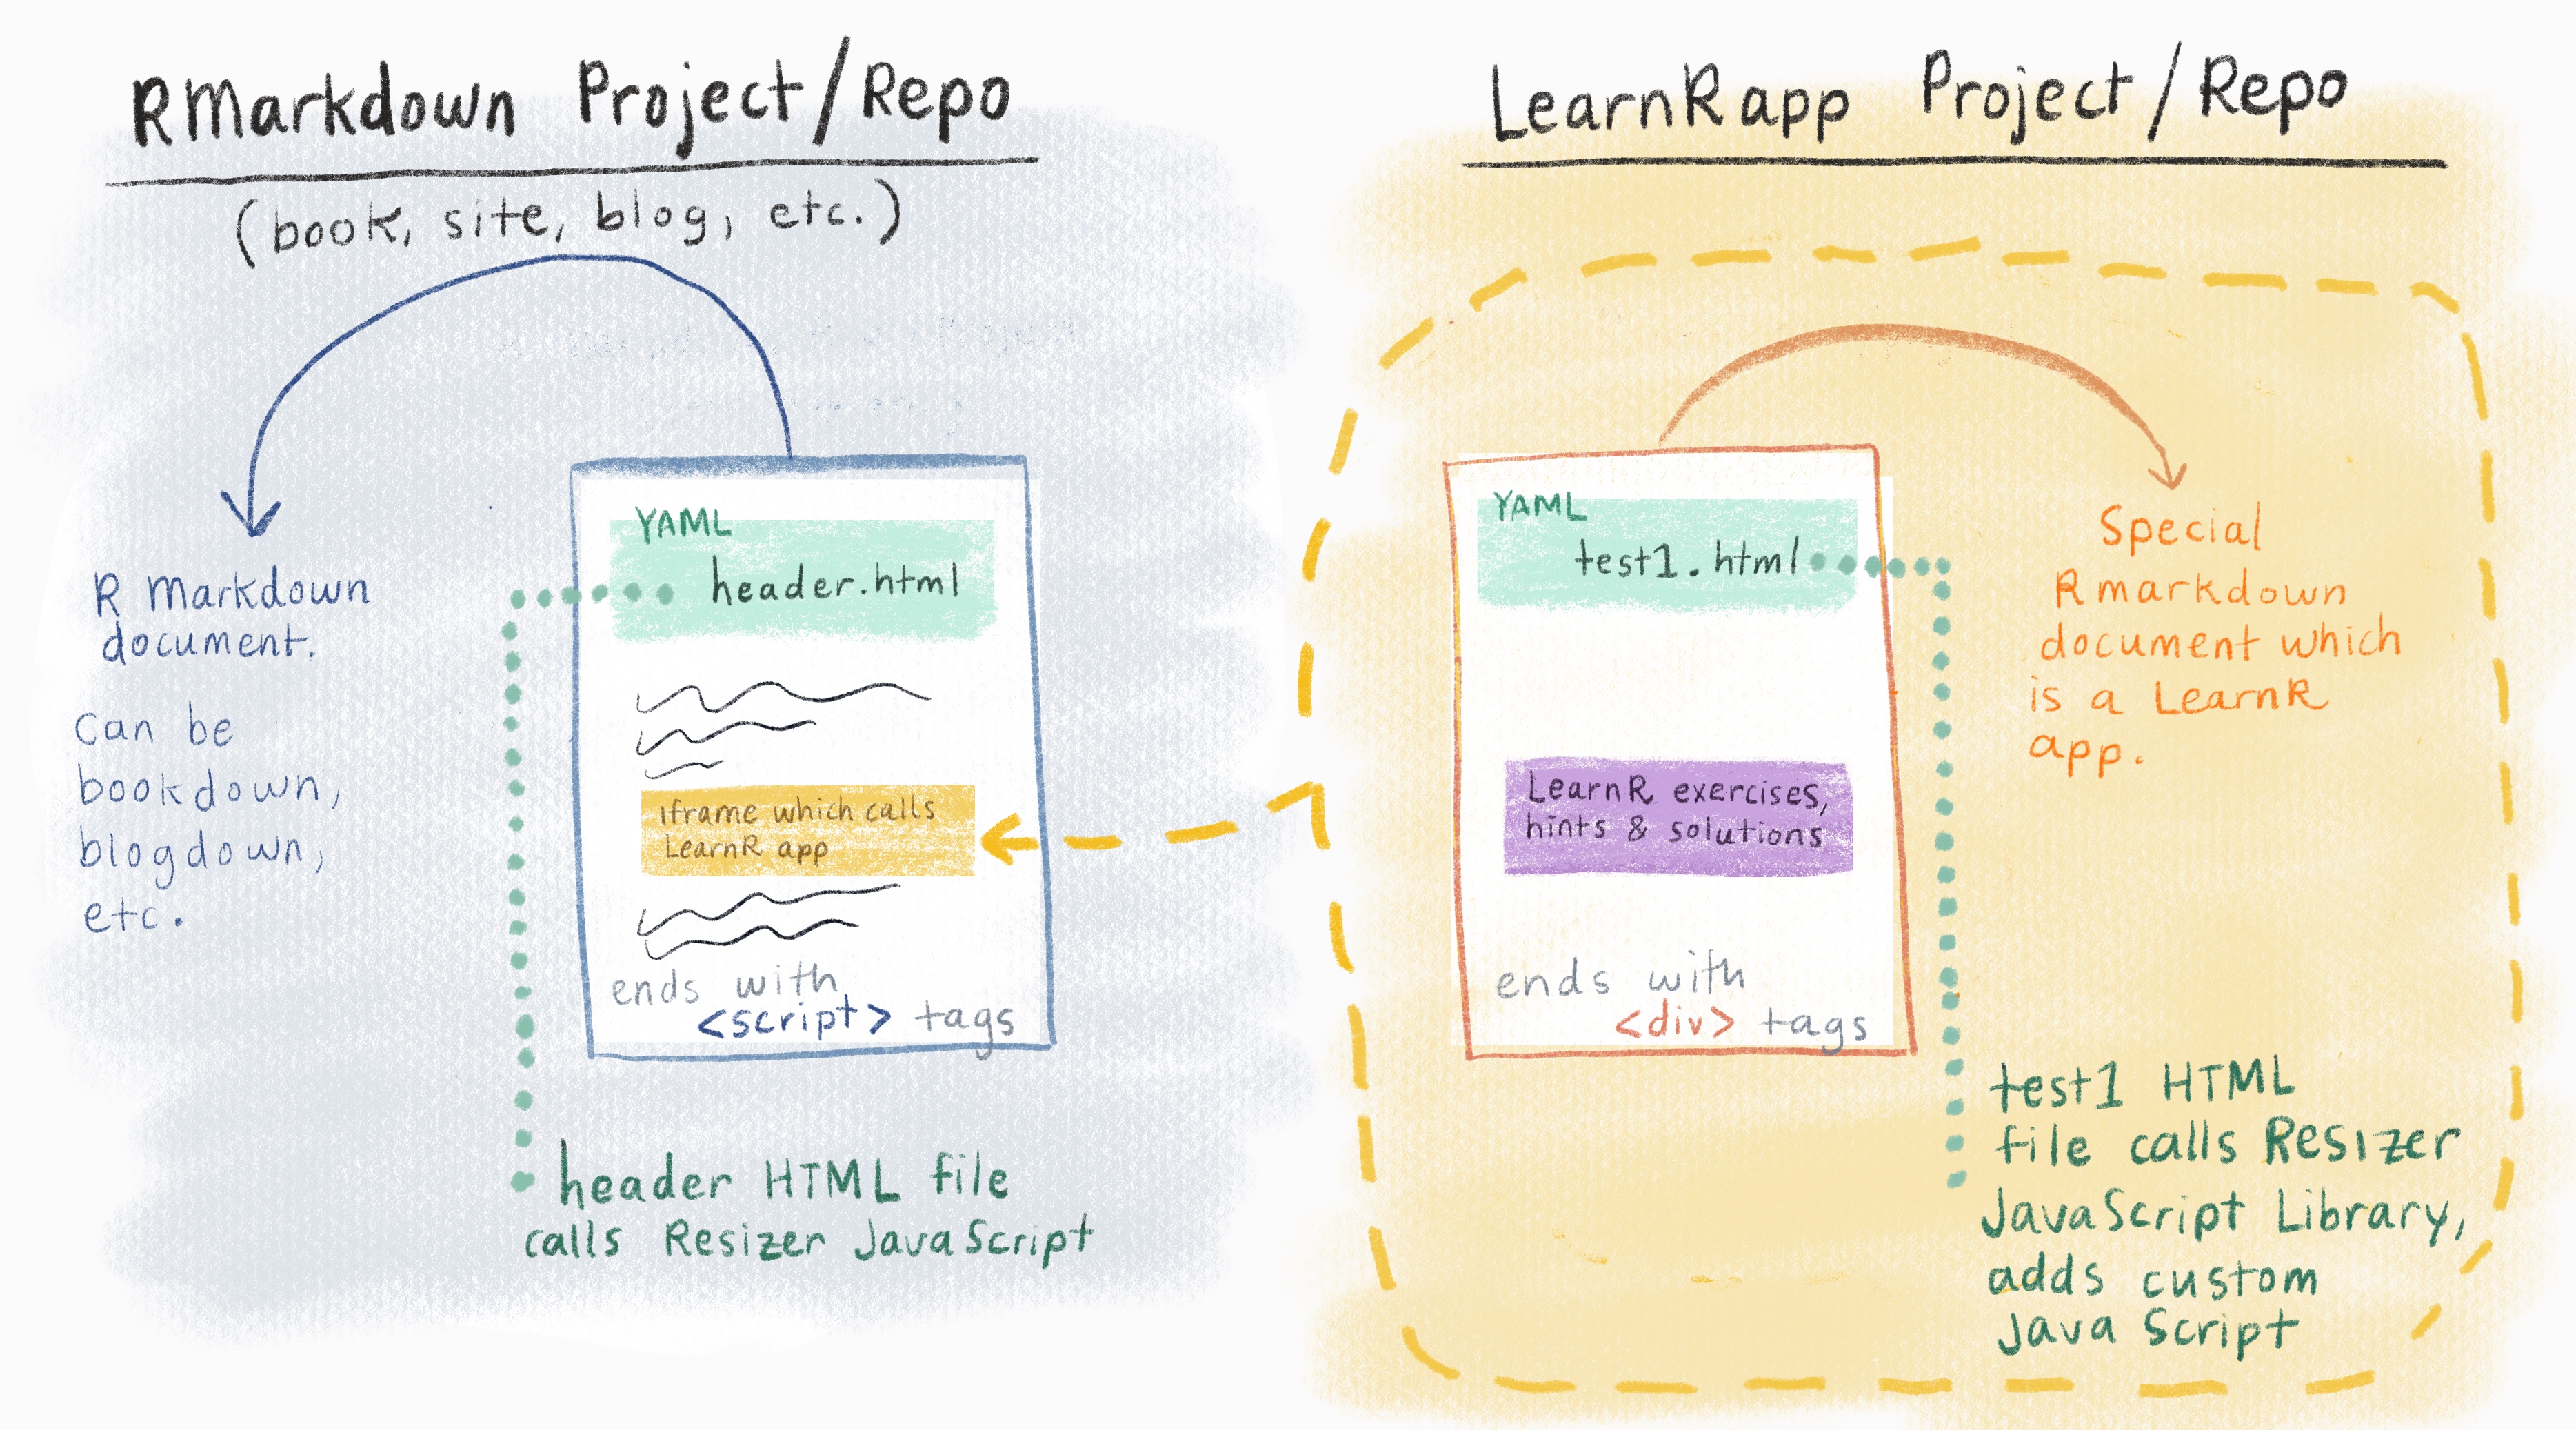 RMarkdown Project/Repo
(book, site, blog, etc.)
R Markdown
document.
Can be
bookdown,
blogdown,
etc.
YAML
header.html
Iframe which calls
LearnR app
ends with
<script> tags
header HTML file
calls Resizer JavaScript
LearnR app Project/Repo
YAML
test1.html
LearnR exercises,
hints & solutions
ends with
<div> tags
Special
Rmarkdown
document which
is a LearnR
app.
test1 HTML
file calls Resizer
JavaScript Library,
adds custom
Java Script